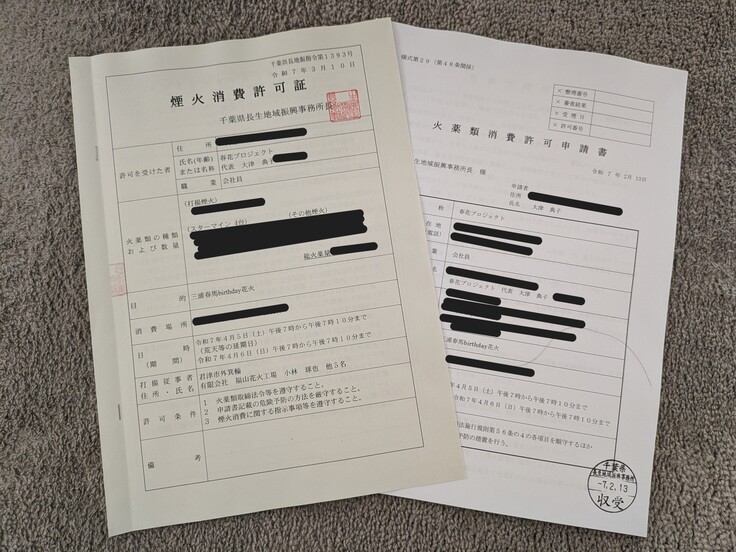 千葉県長地振指令第1393号
令和7年3月10日
煙火消費許可証
千葉県長生地域振興事務所長
許可を受けた者
住所
氏名(年齢)
または名称
春花プロジェクト
代表 大津 典子
職業
会社員
火薬類の種類
および数量
(打揚煙火)
(スターマイン 4台)
(その他煙火)
総火薬量
目的
三浦春馬birthday花火
消費場所
日時
(期間)
令和7年4月5日(土)午後7時から午後7時10分まで
(荒天等の延期日)
令和7年4月6日(日)午後7時から午後7時10分まで
打揚従事者
住所・氏名
君津市外箕輪
有限会社 福山花火工場 小林 球也 他5名
許可条件
1 火薬類取締法令等を遵守すること。
2 申請書記載の危険予防の方法を厳守すること。
3 煙火消費に関する指示事項等を遵守すること。
備考
様式第29(第48条関係)
×整理番号
×審査結果
×受理日
×許可番号
火薬類消費許可申請書
令和7年2月13日
生地域振興事務所長 様
申請者
住所
氏名 大津 典子
称
春花プロジェクト
在地
(電話)
業
会社員
名
春花プロジェクト 代表 大津 典子
浦春馬birthday花火
年4月5日(土)午後7時から午後7時10分まで
令和7年4月6日(日)午後7時から午後7時10分まで
法施行規則第56条の4の各項目を順守するほか
予防の措置を行う。
千葉県
長生地域振興事務所
-7.2.13
収受